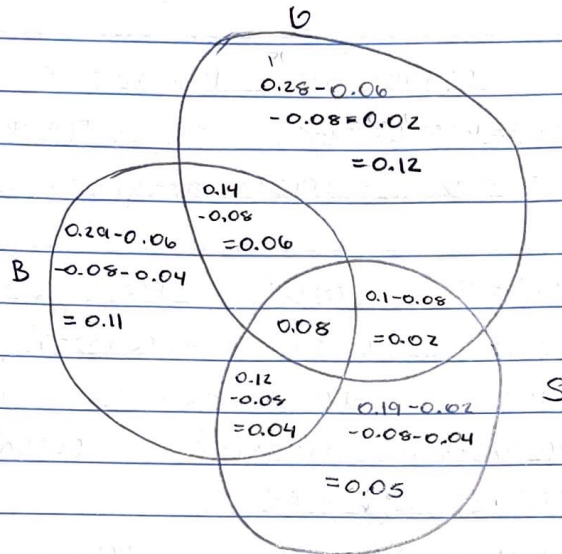 G
0.28-0.06
-0.08=0.02
=0.12
0.14
-0.08
=0.06
0.29-0.06
-0.08-0.04
= 0.11
B
0.1-0.08
=0.02
0.08
0.12
-0.08
=0.04
0.19-0.02
-0.08-0.04
=0.05
S